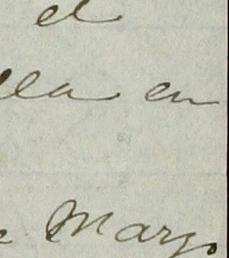 el
lla en
Marzo